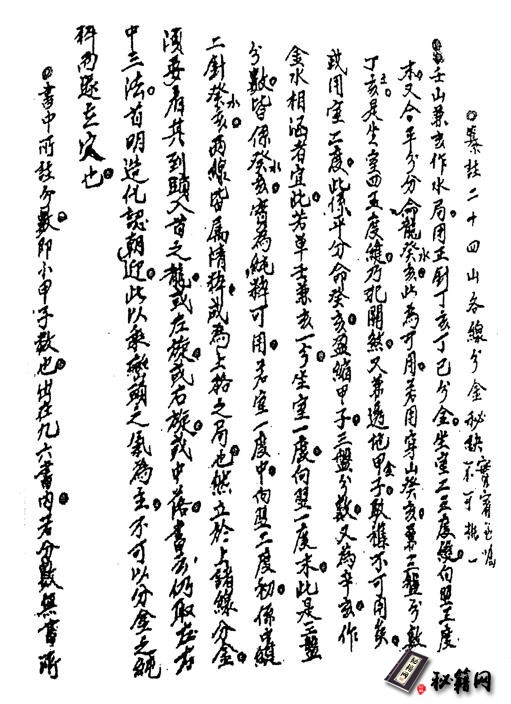 纂註二十四山各線分金秘訣
壬山兼亥作水局用正針丁亥丁巳分金坐室二三度縫向翌王度
未又合平分分命龍癸亥水此為可用若用穿山癸亥兼三盤分數
丁亥是坐室四五度縫乃犯關然又兼透地甲子金取雜不可用矣
或用室二度此係平分命癸亥盈縮甲子三盤分數又為辛亥作
金水相涵者宜此若單壬兼亥一分坐室一度向翌一度末此是三盤
分數皆係癸亥水當為純粹可用若室一度中向翌二度初係中縫
二針癸亥水兩線皆屬清粹或為上格之局也然立於上諸線分金
須要看其到頭入首之龍或左旋或右旋或中落書云仍取在右
中三法首明造化認朝迎此以乘巒頭之氣為主不可以分金之純
粹而疑其定也
書中所註分數即小甲子数也出在九六書內若分數無書所
秘籍网